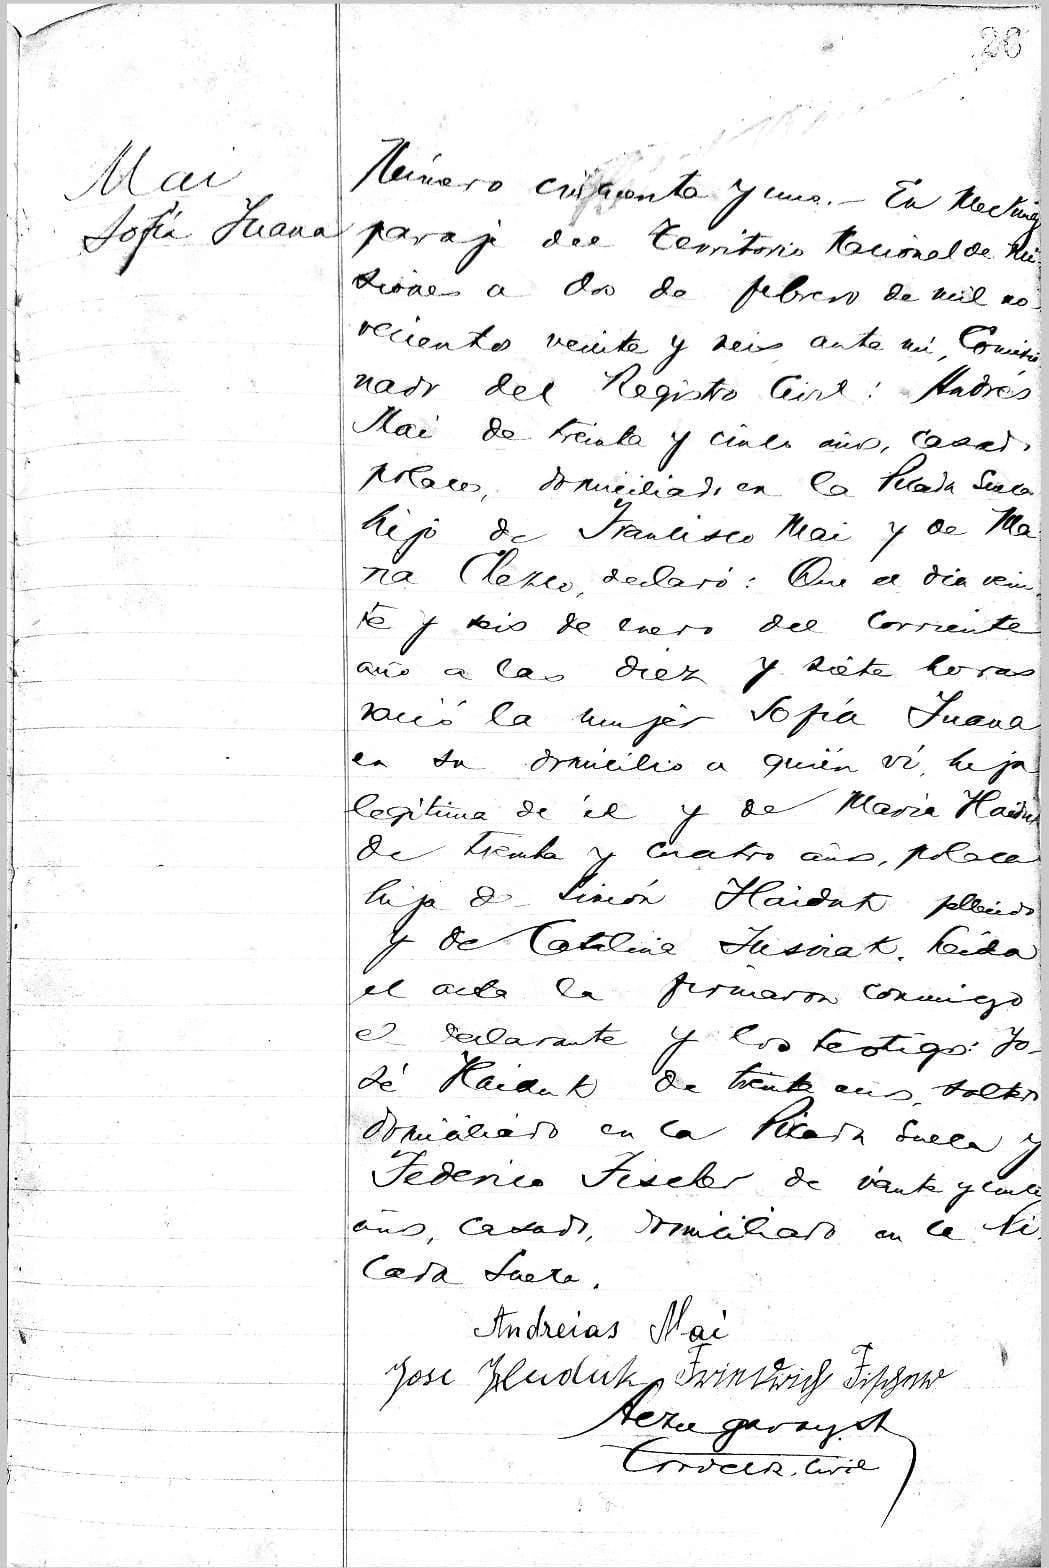 26
Mai
Sofía Juana
Número cincuenta y uno. — En Mecking
paraje del Territorio Nacional de Mi-
siones a dos de febrero de mil no-
vecientos veinte y seis ante mí, Comisio
nado del Registro Civil: Andrés
Mai de treinta y cinco años, casado
polaco, domiciliado en la Picada Sueca
hijo de Francisco Mai y de Ma-
ria declaró: Que el día vein-
te y seis de enero del corriente
año a las diez y siete horas
nació la mujer Sofía Juana
en su domicilio a quién ví, hija
legítima de él y de María Haiduk
de treinta y cuatro años, polaca
hija de Simón Haiduk fallecido
y de Catalina Leída
el acta la firmaron conmigo
el declarante y los testigos: Jo-
sé Haiduk de treinta años, soltero
domiciliado en la Picada Sueca y
Federico Fischer de veinte y cinco
años, casado, domiciliado en la Pi-
cada Sueca.
Andreias Mai
Jose Hiuduk Friedrich Fischer